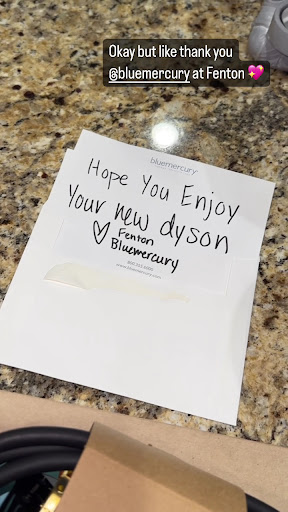 Okay but like thank you
@bluemercury at Fenton 💖
bluemercury
Hope You Enjoy
Your new dyson
♡ Fenton
Bluemercury
www.bluemercury.com